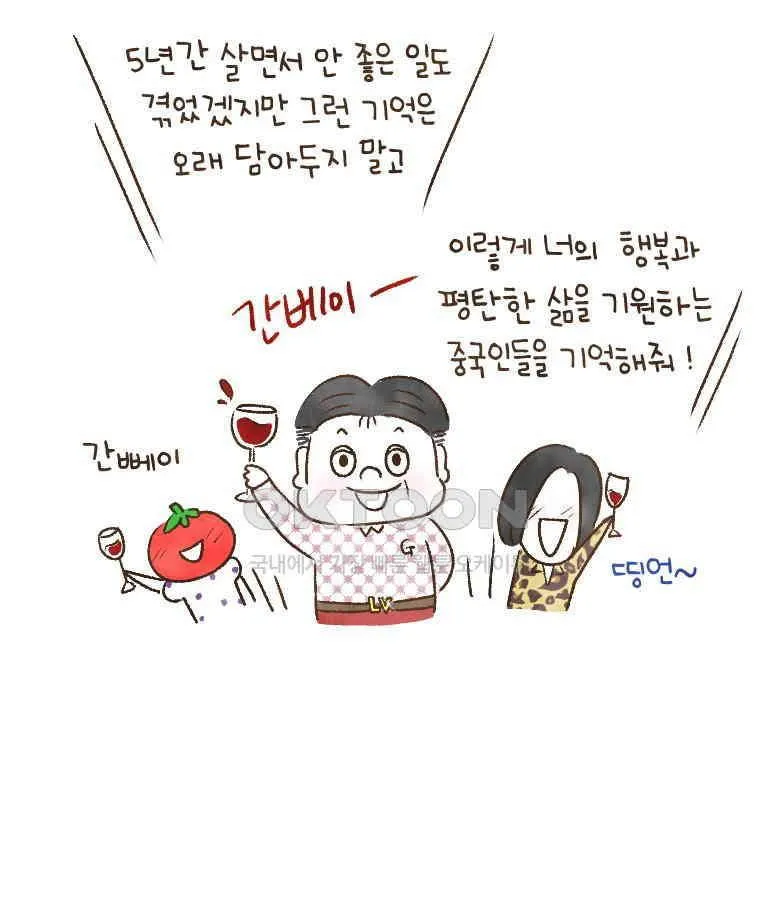 5년간 살면서 안 좋은 일도
겪었겠지만 그런 기억은
오래 담아두지 말고
이렇게 너의 행복과
평탄한 삶을 기원하는
중국인들을 기억해줘!
간베이ー
간뻬이
OKTOON
국내에서 가장 빠른 웹툰 오케이툰
G
LV
띵언~